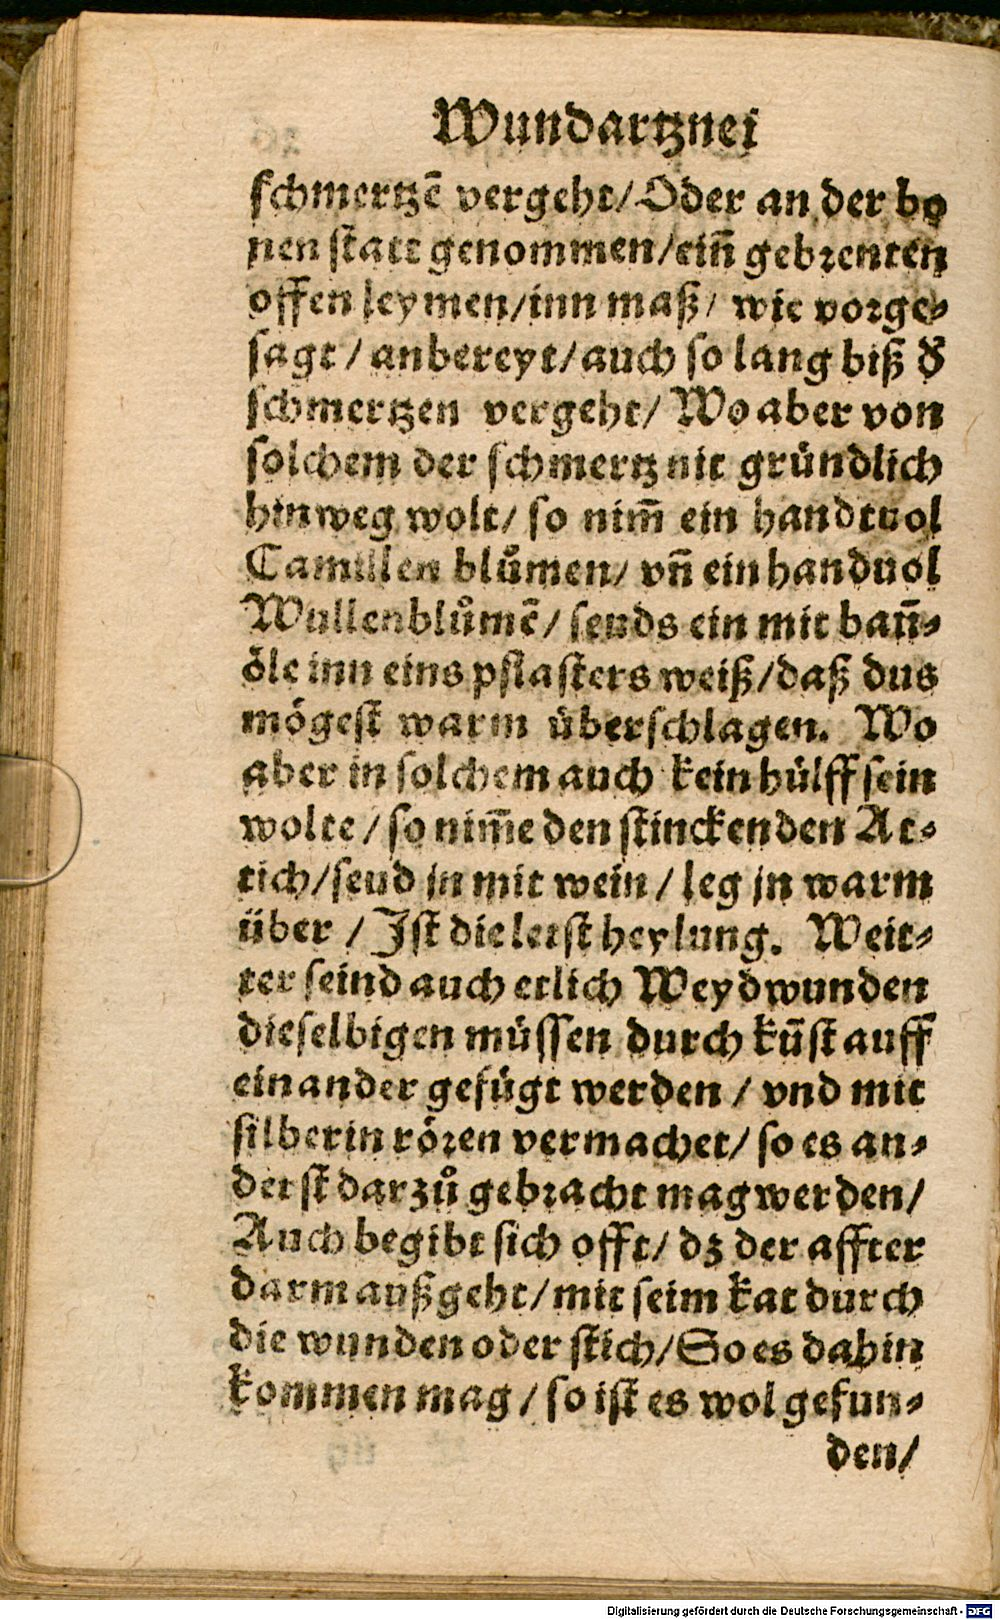 Wundartznei
schmertzē vergeht/ Oder an der bo
nen statt genommen/ein̄ gebrenten
offen leymen/inn maß/ wie vorge⸗
sagt / anbereyt/auch so lang biß đ
schmertzen vergeht/ Wo aber von
solchem der schmertz nit gründlich
hinweg wolt/ so nim̄ ein handtuol
Camillen blůmen/ vn̄ ein handuol
Wullenblůmē/ seuds ein mit baū⸗
öle inn eins pflasters weiß/daß dus
mögest warm überschlagen. Wo
aber in solchem auch kein hülff sein
wolte / so nim̄e den stinckenden At⸗
tich/seud jn mit wein / leg jn warm
über / Ist die letst heylung. Weit⸗
ter seind auch etlich Weydwunden
dieselbigen müssen durch kūst auff
einander gefügt werden / vnd mit
silberin rören vermachet/ so es an⸗
derst darzů gebracht mag werden/
Auch begibt sich offt/ dz der affter
darm außgeht/mit seim kat durch
die wunden oder stich/So es dahin
kommen mag / so ist es wol gefun⸗
den/
Digitalisierung gefördert durch die Deutsche Forschungsgemeinschaft - DFG